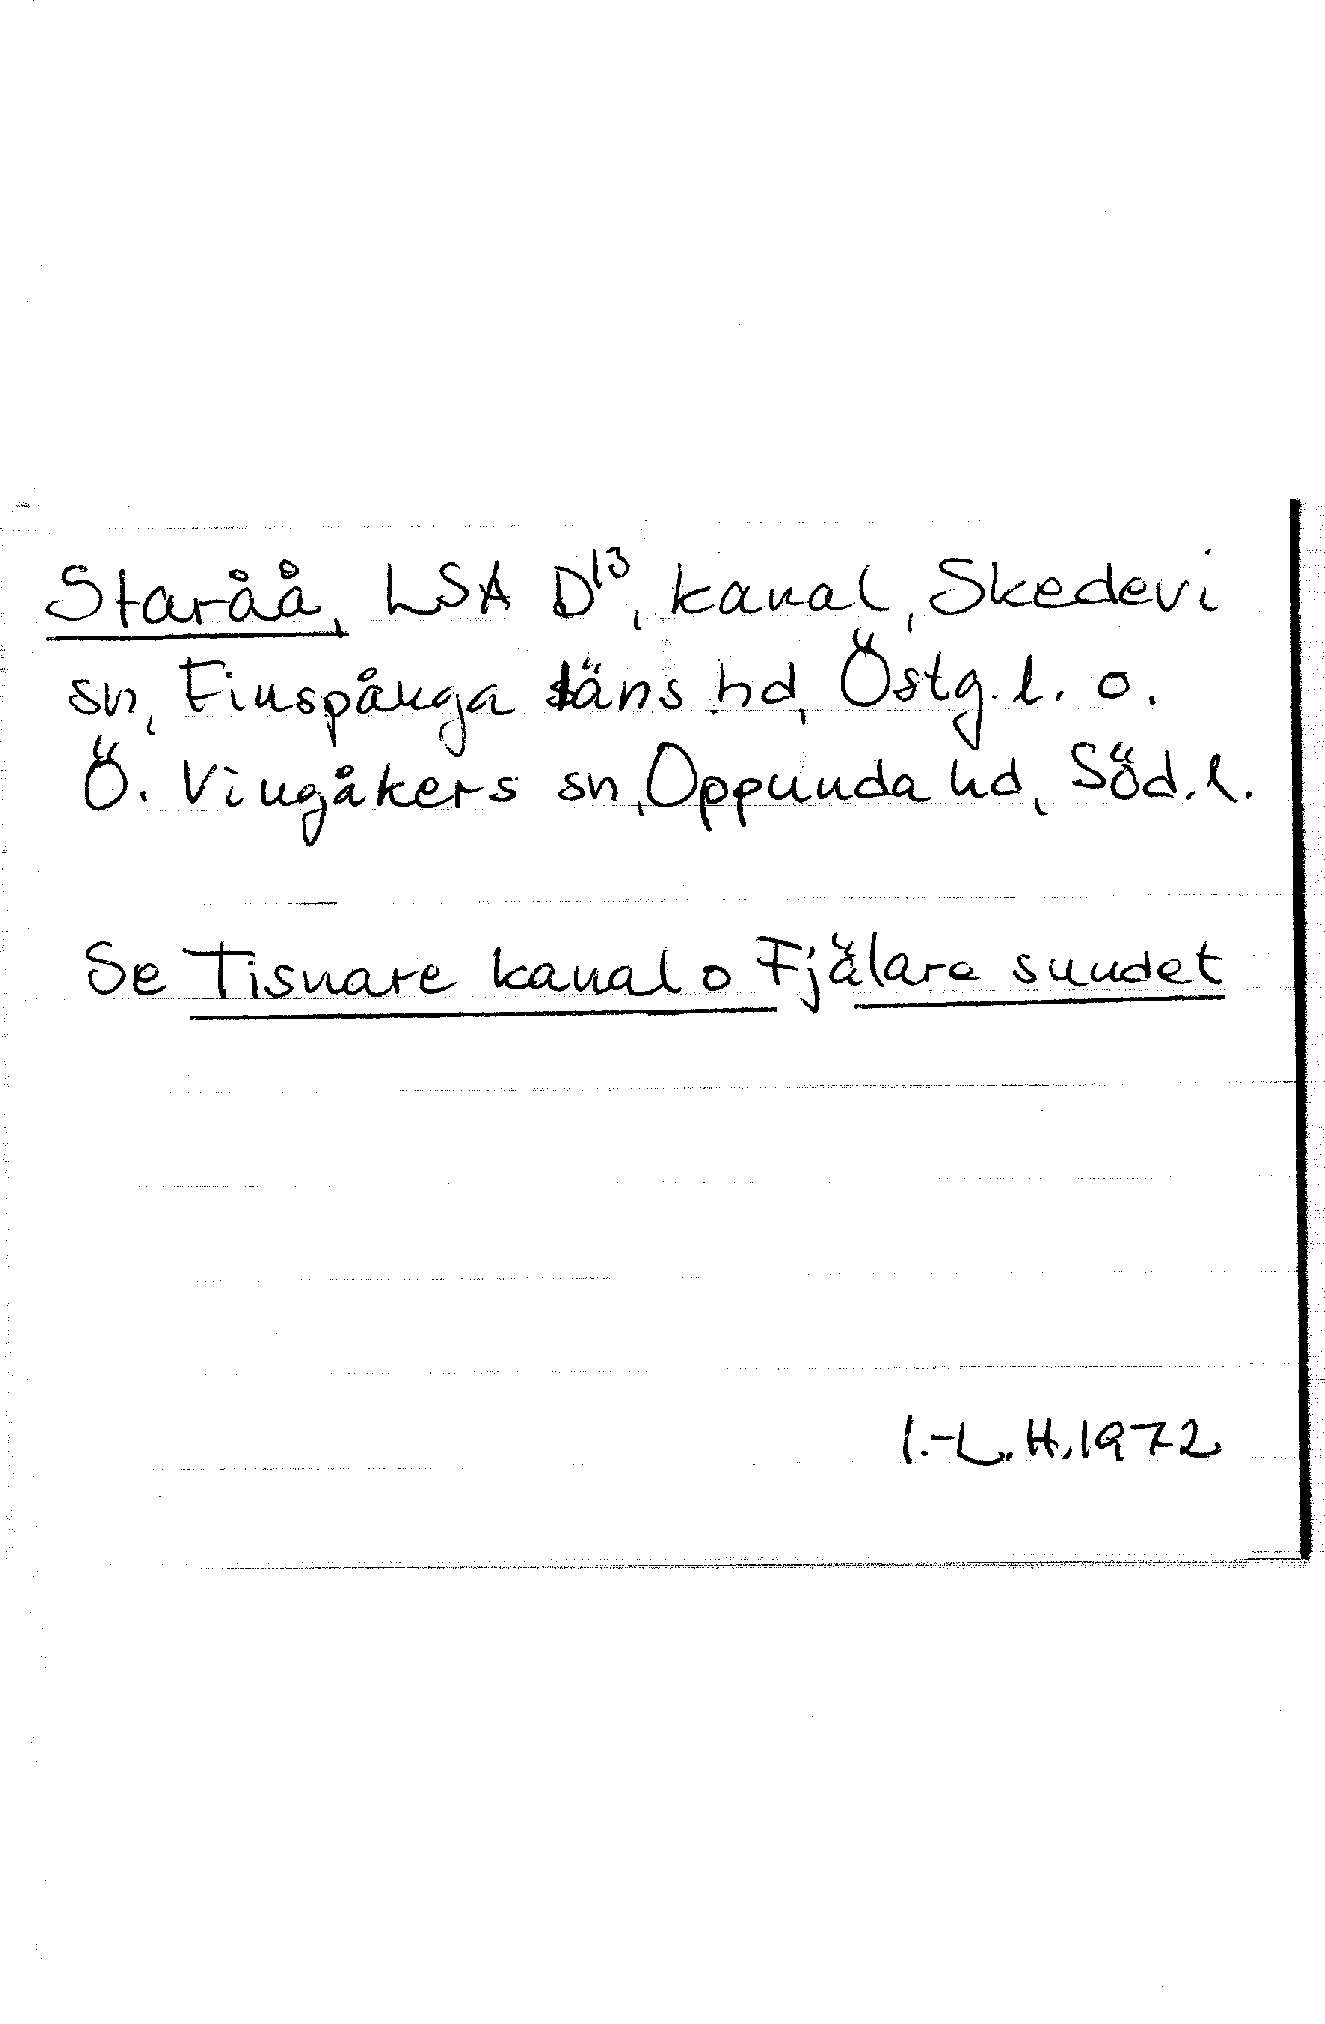 Staråå, LSA D¹³, kanal, Skedevi
sn, Finspånga läns hd, Östg. l. o.
Ö. Vingåkers sn, Oppunda hd, Söd. l.
Se Tisnare kanal o Fjälare sundet
I.-L. H. 1972